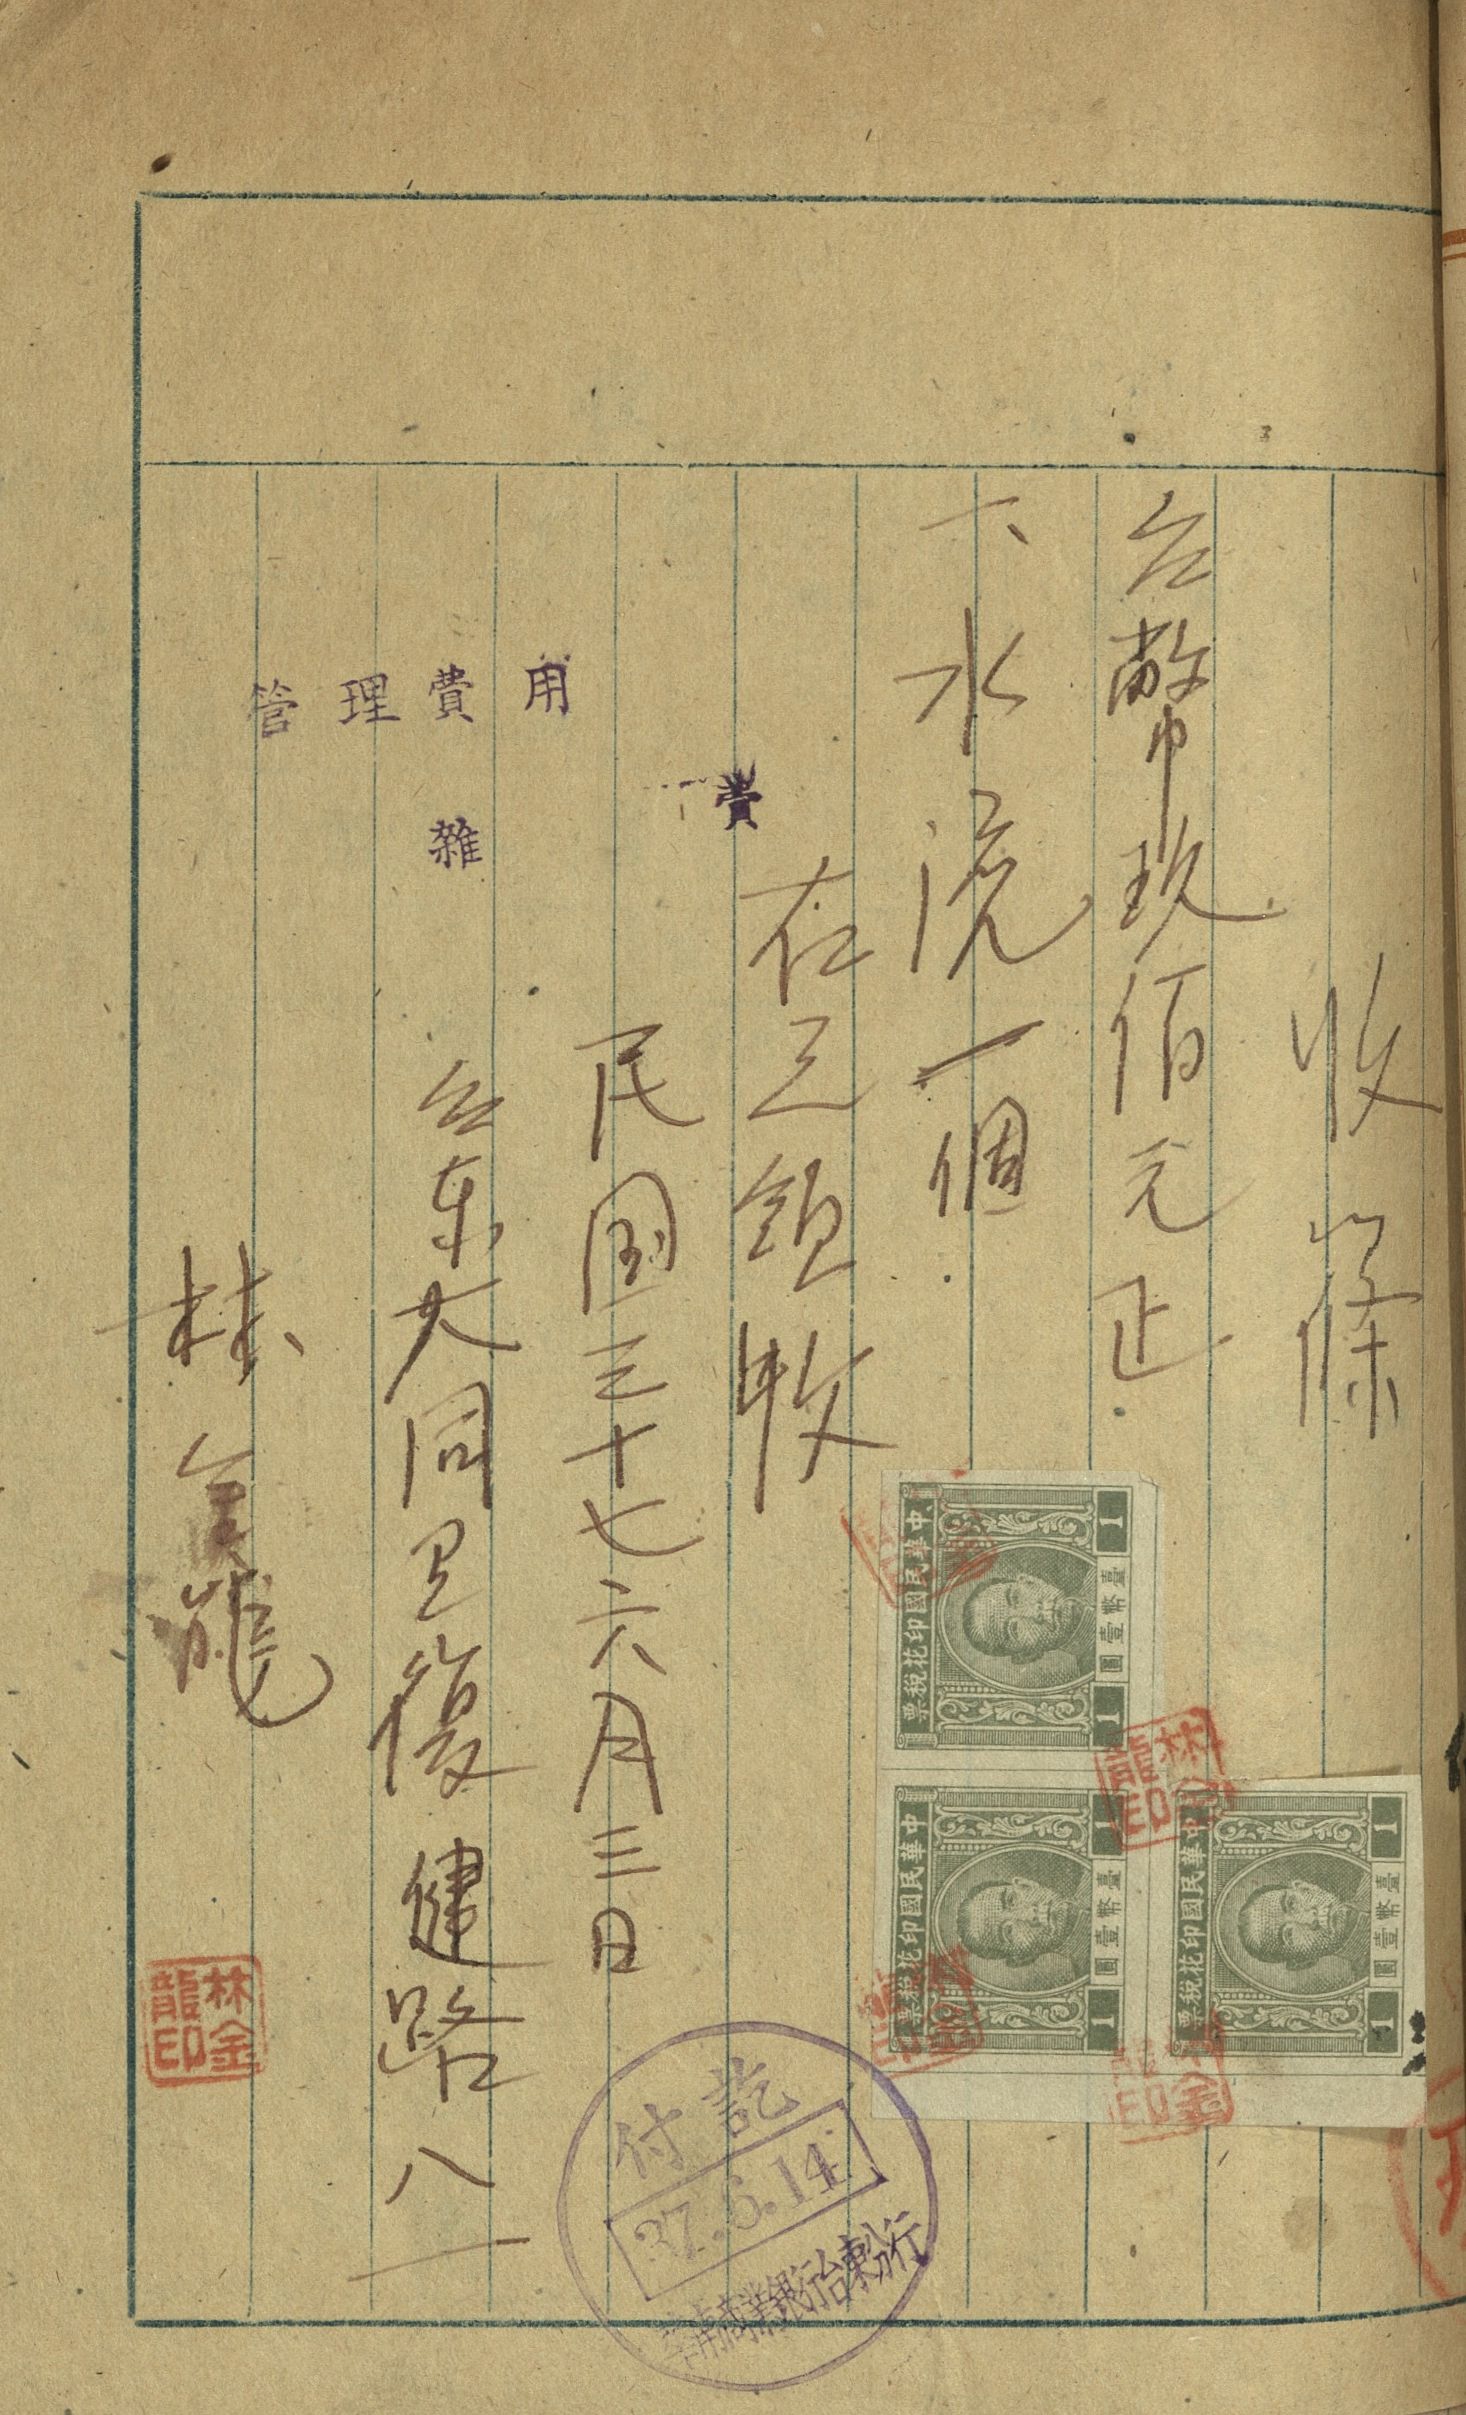 收條
台幣玖佰元正
水流一個
右正領收
民國三十七六月三日
台東大同里復健路八一
林金龍
管理費用
雜
費
中華民國印花稅票
臺幣壹圓
1
1
中華民國印花稅票
臺幣壹圓
1
1
中華民國印花稅票
臺幣壹圓
1
1
林金龍印
林金龍印
付訖
37.6.14
商業銀行台東分行